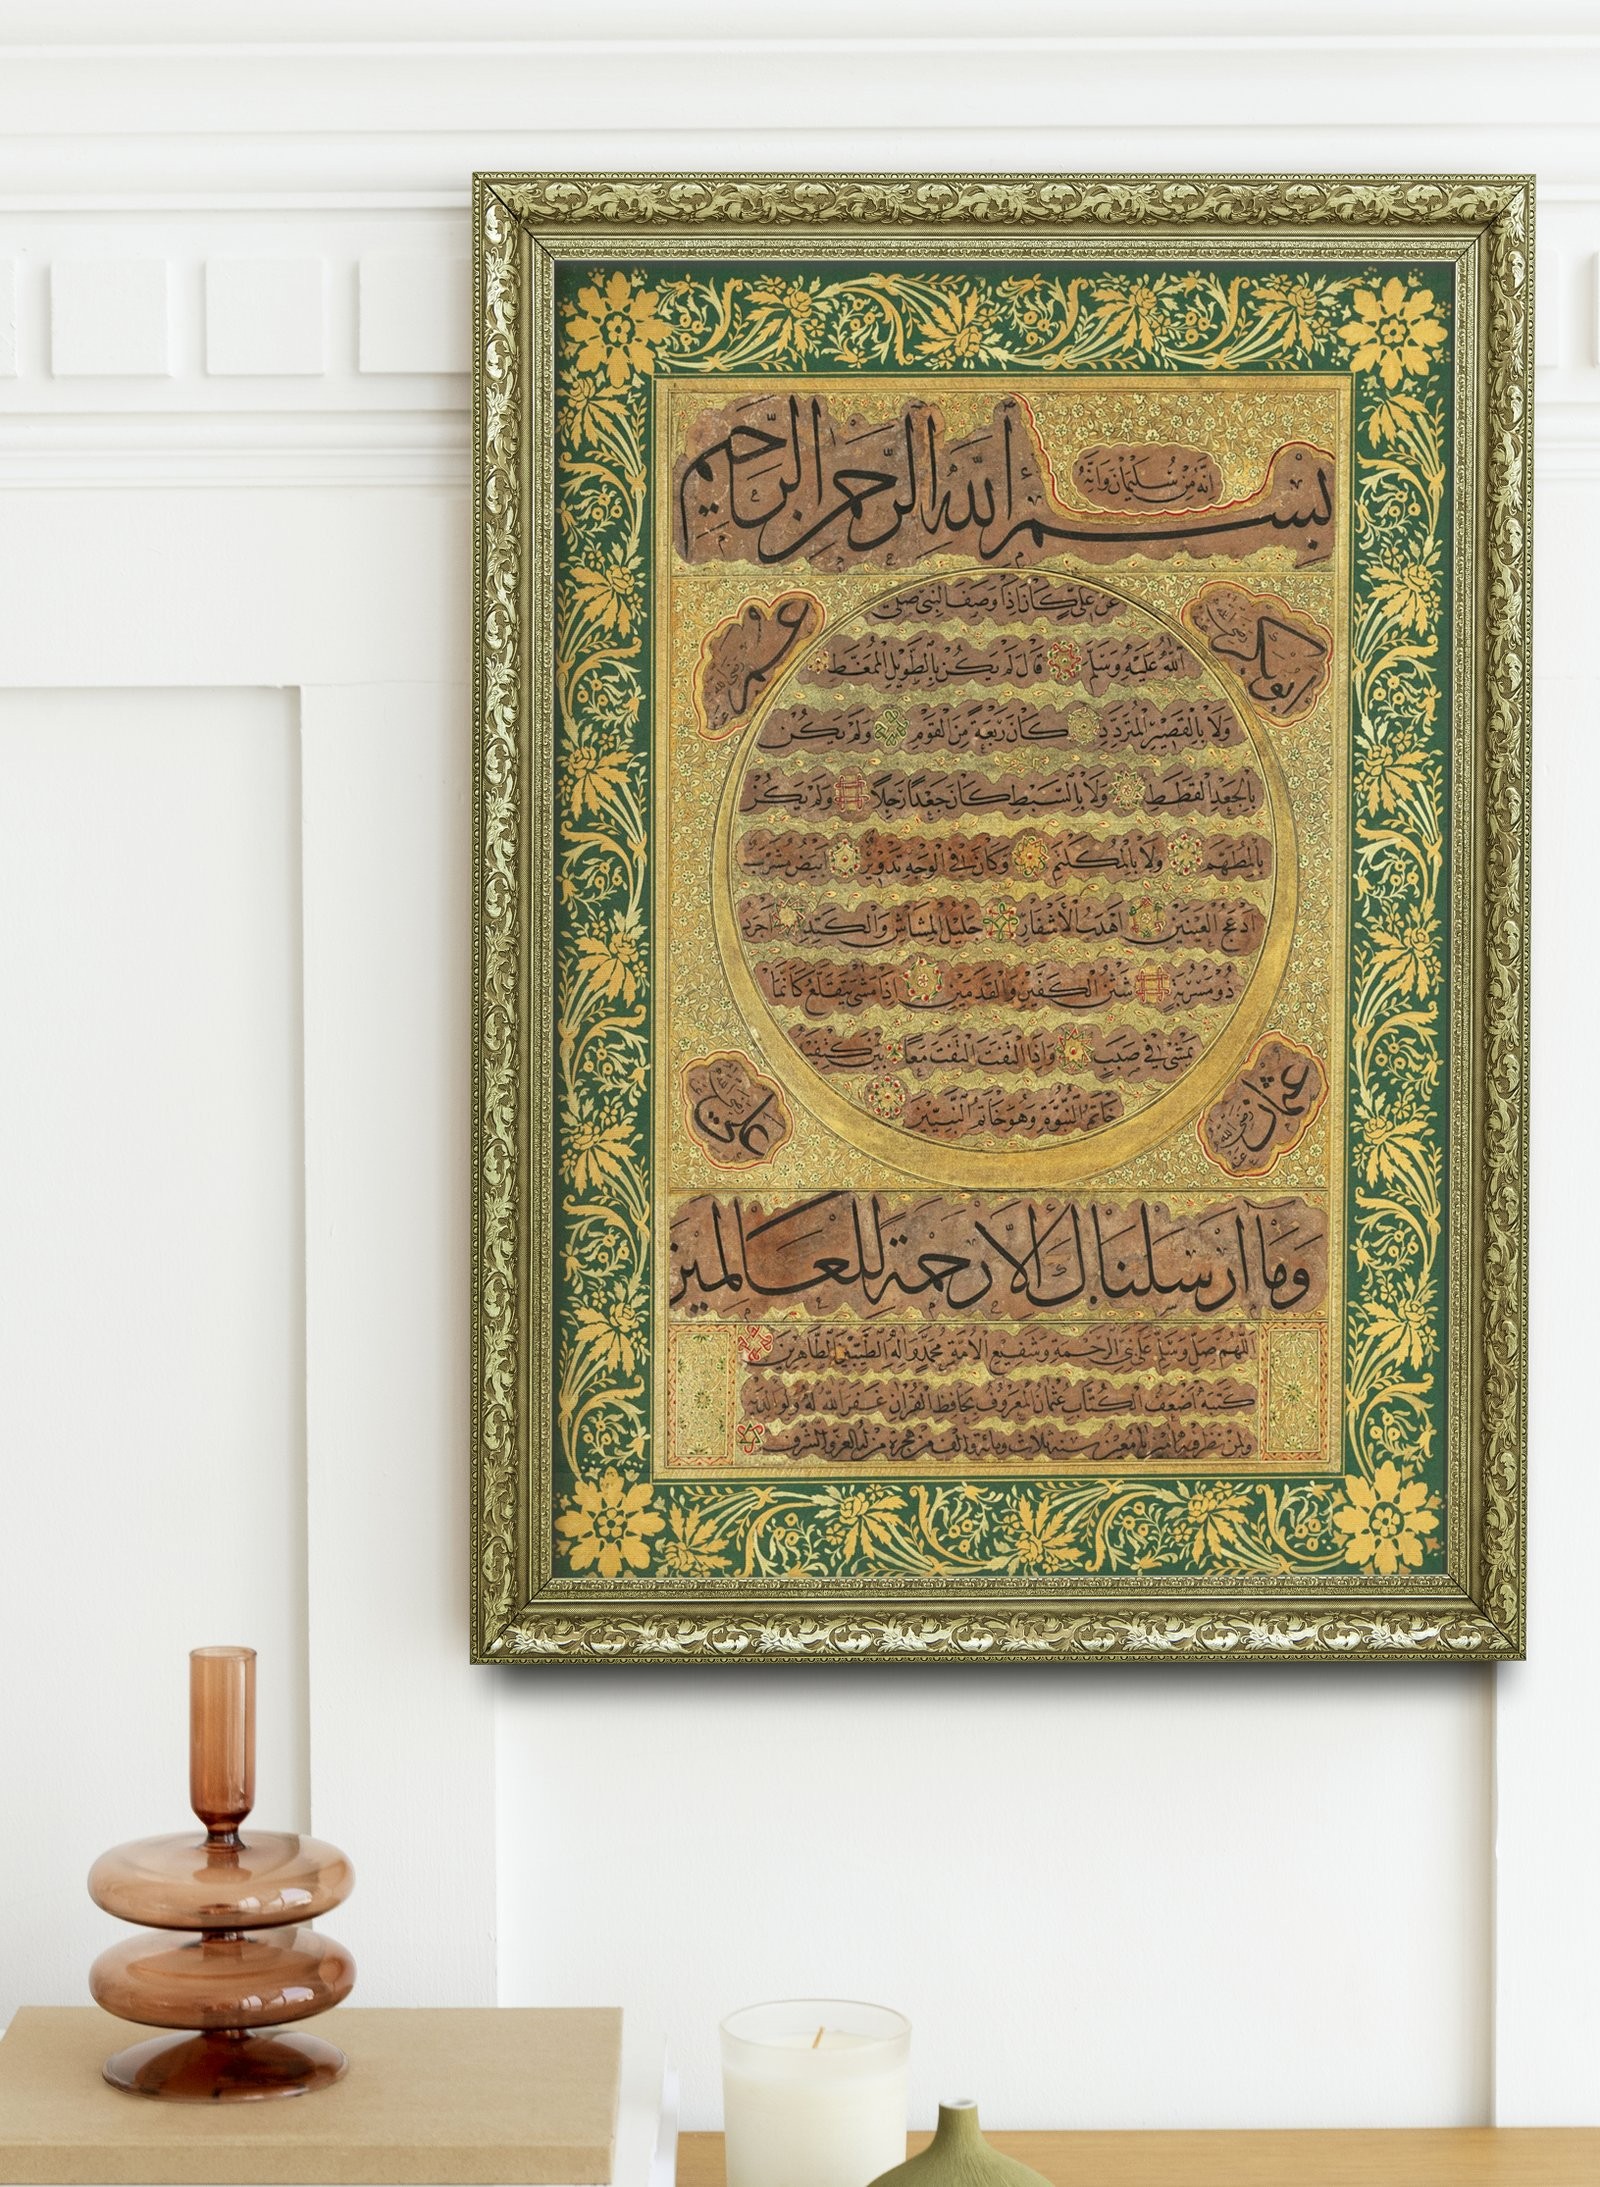 بِسْمِ اللّٰهِ الرَّحْمٰنِ الرَّحِيمِ
اِنَّهُ مِنْ سُلَيْمَانَ وَاِنَّهُ
ابوبكر
رضي الله عنه
عمر
رضي الله عنه
عن علي كان اذا وصف النبي صلى
الله عليه وسلم قال لم يكن بالطويل الممغط
ولا بالقصير المتردد كان ربعة من القوم ولم يكن
بالجعد القطط ولا بالسبط كان جعدا رجلا ولم يكن
بالمطهم ولا بالمكلثم وكان في الوجه تدوير ابيض مشرب
ادعج العينين اهدب الاشفار جليل المشاش والكتد اجرد
ذو مسربة شثن الكفين والقدمين اذا مشى يتقلع كانما
يمشي في صبب واذا التفت التفت معا بين كتفيه
خاتم النبوة وهو خاتم النبيين
عثمان
رضي الله عنه
علي
وما ارسلناك الا رحمة للعالمين
اللهم صل وسلم على نبي الرحمة وشفيع الامة محمد واله الطيبين الطاهرين
كتبه اضعف الكتاب عثمان المعروف بحافظ القران غفر الله له ولوالديه
ولمن نظر فيه امين يا معين سنة ثلاث ومائة والف من هجرة من له العز والشرف